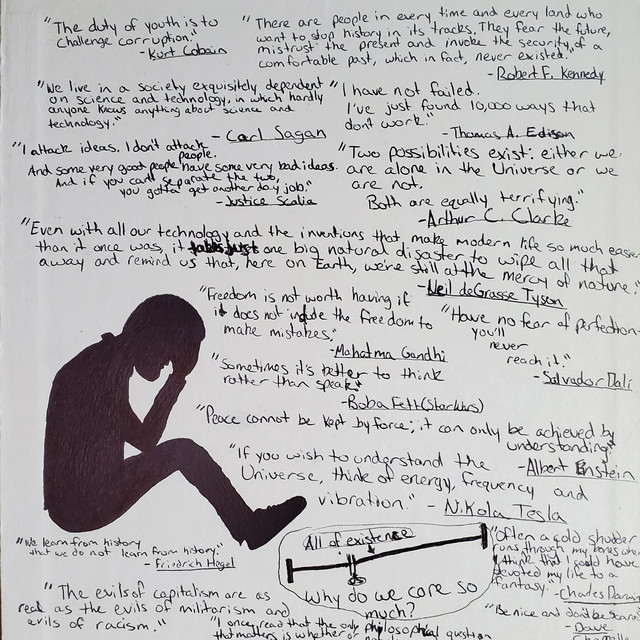 "The duty of youth is to
challenge corruption."
- Kurt Cobain
"There are people in every time and every land who
want to stop history in its tracks. They fear the future,
mistrust the present and invoke the security of a
comfortable past, which in fact, never existed."
- Robert F. Kennedy
"We live in a society exquisitely dependent
on science and technology, in which hardly
anyone knows anything about science and
technology."
- Carl Sagan
"I have not failed.
I've just found 10,000 ways that
don't work."
- Thomas A. Edison
"I attack ideas. I don't attack
people.
And some very good people have some very bad ideas.
And if you can't separate the two,
you gotta get another day job."
- Justice Scalia
"Two possibilities exist: either we
are alone in the Universe or we
are not.
Both are equally terrifying."
- Arthur C. Clarke
"Even with all our technology and the inventions that make modern life so much easier
than it once was, it takes just one big natural disaster to wipe all that
away and remind us that, here on Earth, we're still at the mercy of nature."
- Neil deGrasse Tyson
"Freedom is not worth having if
it does not include the freedom to
make mistakes."
- Mahatma Gandhi
"Have no fear of perfection-
you'll
never
reach it."
- Salvador Dali
"Sometimes it's better to think
rather than speak."
- Boba Fett (Star Wars)
"Peace cannot be kept by force; it can only be achieved by
understanding."
- Albert Einstein
"If you wish to understand the
Universe, think of energy, frequency and
vibration." - Nikola Tesla
"We learn from history
that we do not learn from history."
- Friedrich Hegel
All of existence
Why do we care so
much?
"Often a cold shudder
runs through my bones when
I think that I could have
devoted my life to a
fantasy."
- Charles Darwin
"The evils of capitalism are as
real as the evils of militarism and
evils of racism."
"Be nice and don't be scared
- Dave
"I once read that the only philosophical question
that matters is whether or